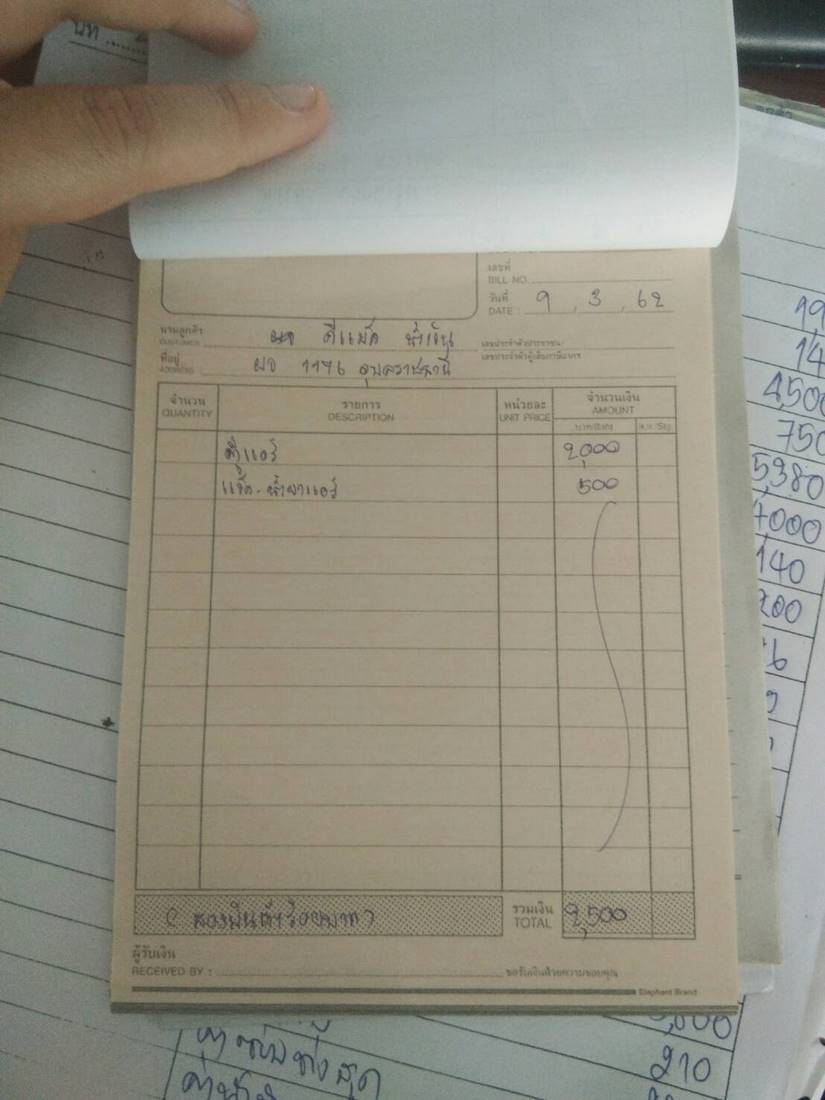 เลขที่
BILL NO.
วันที่ 9 , 3 , 62
DATE :
นามลูกค้า ดีแม็ค น้ำเงิน
CUSTOMER
เลขประจำตัวประชาชน
เลขประจำตัวผู้เสียภาษีอากร
ที่อยู่ ผอ 1176 อุบลราชธานี
ADDRESS
จำนวน รายการ หน่วยละ จำนวนเงิน
QUANTITY DESCRIPTION UNIT PRICE AMOUNT
บาท/Baht ส.ต./Stg.
ตู้แอร์ 2,000
น้ำยาแอร์ 500
( สองพันห้าร้อยบาท ) รวมเงิน 2,500
TOTAL
ผู้รับเงิน
RECEIVED BY : ขอรับเงินด้วยความขอบคุณ
Elephant Brand
14
4,500
750
5,380
4,000
140
200
210